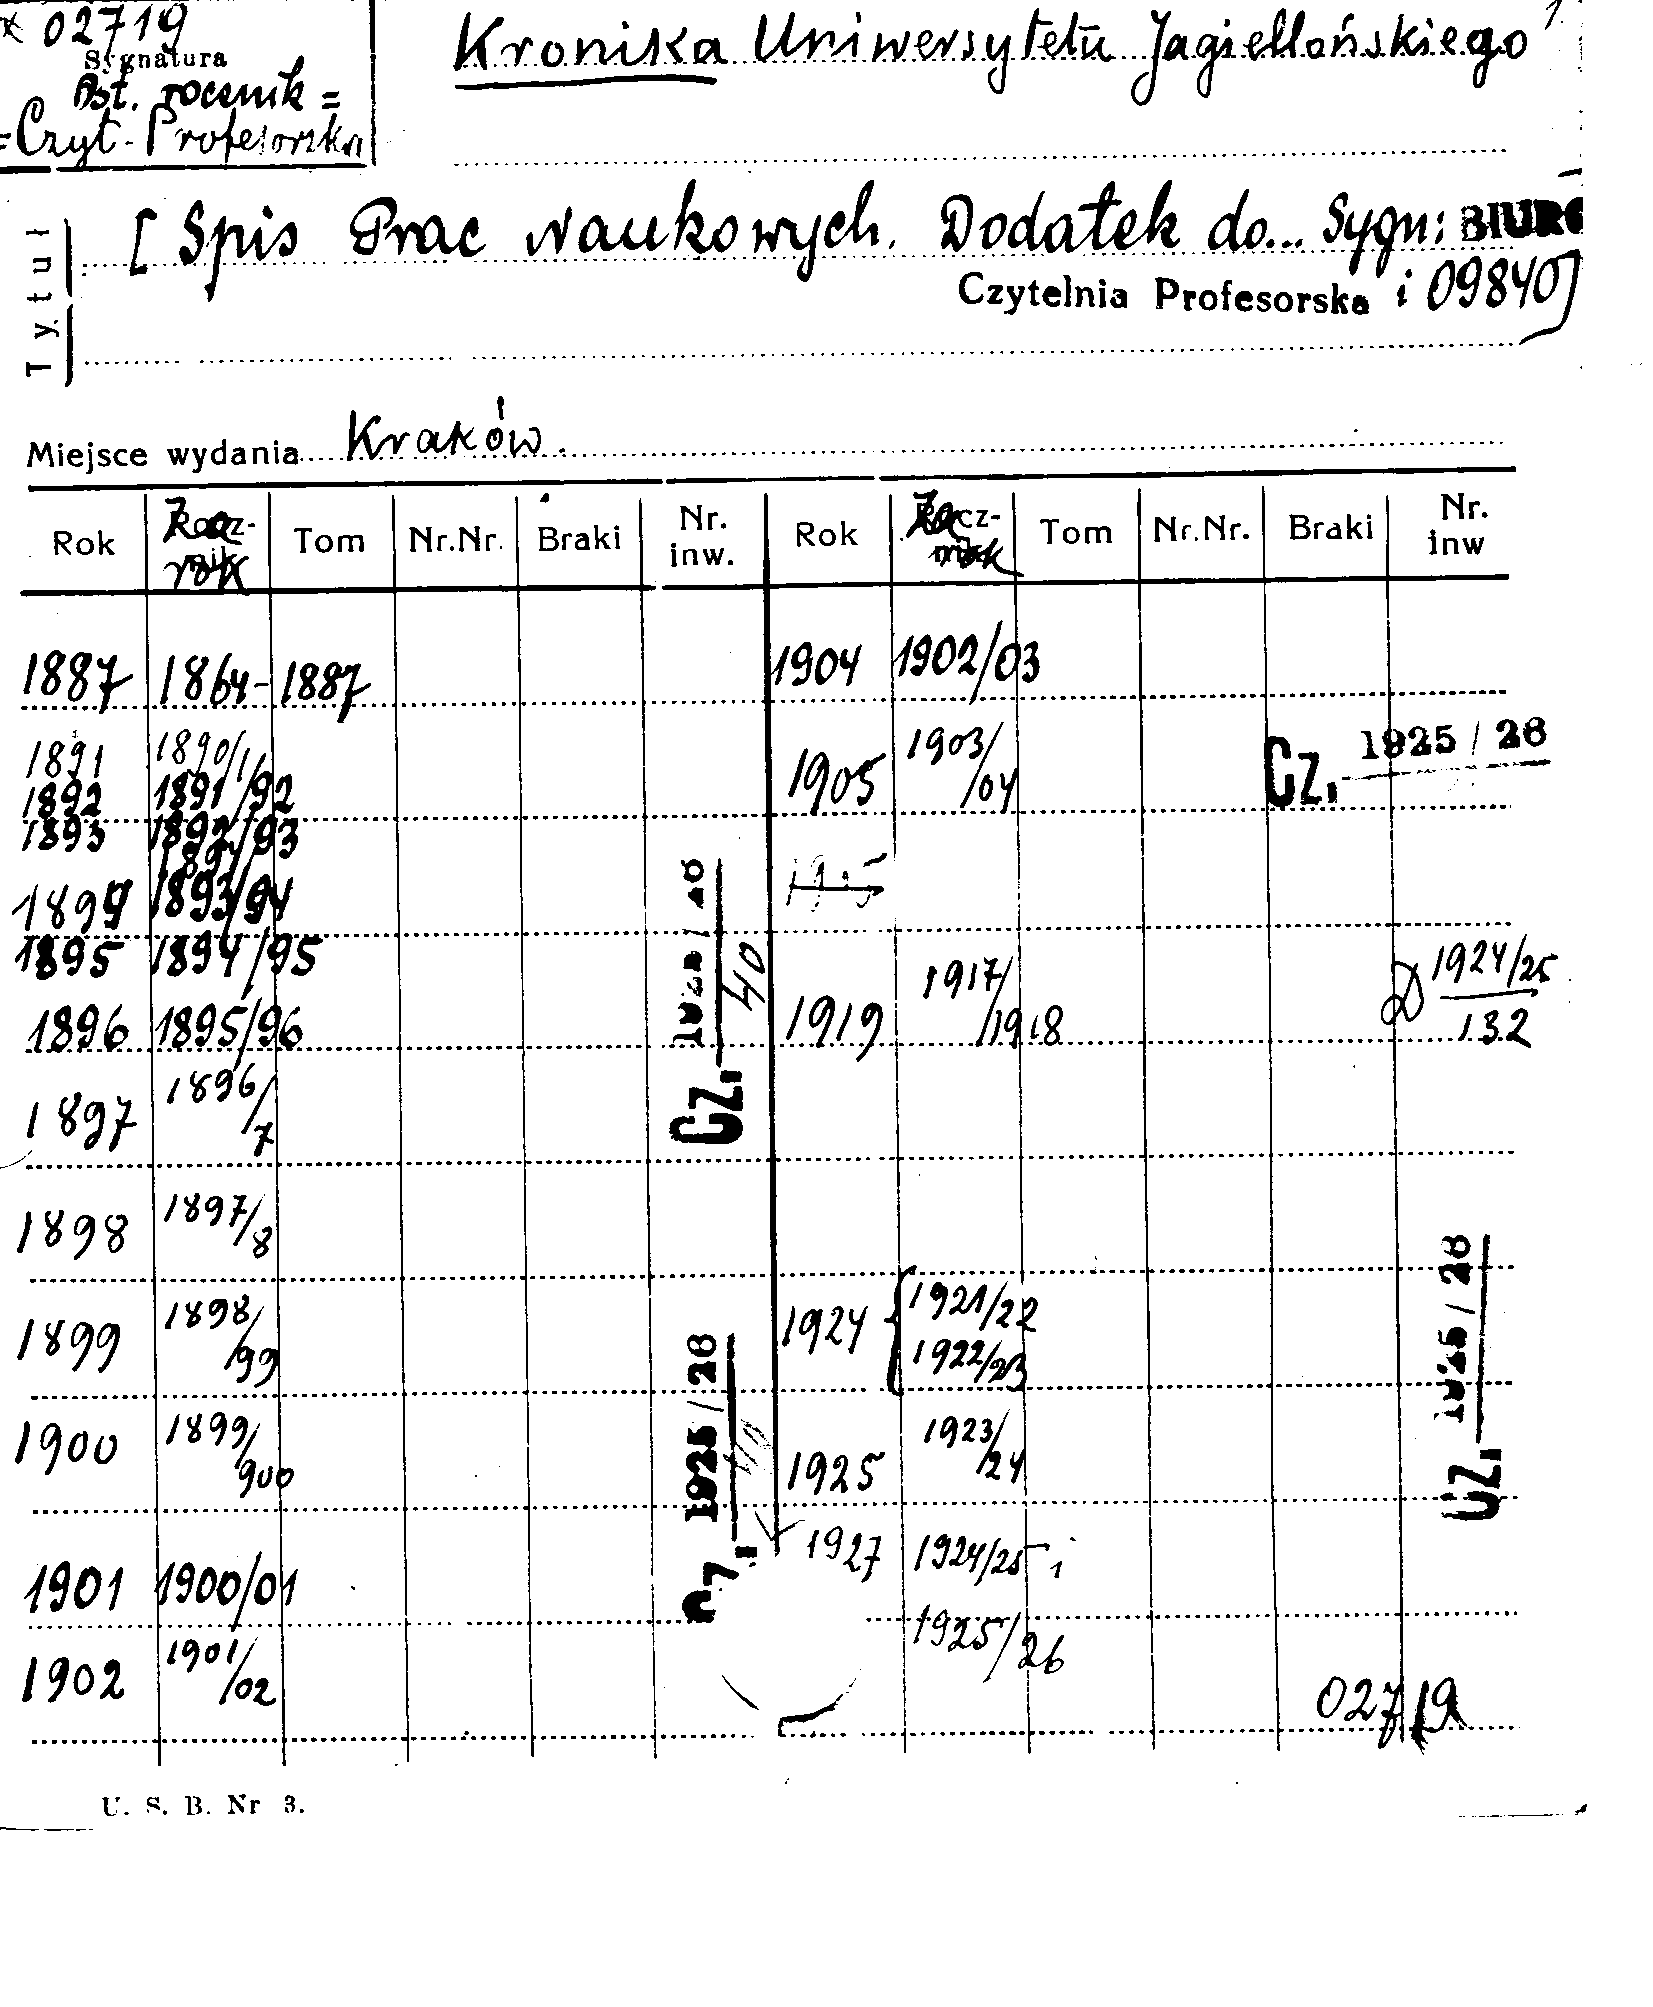 02719
Sygnatura
Ost. rocznik =
= Czyt. Profesorska
Kroniska Uniwersytetu Jagiellońskiego
1.
Tytuł
[ Spis Prac Naukowych. Dodatek do... Sygn: BIURO
Czytelnia Profesorska i 09840]
Miejsce wydania Kraków.
Rok Za rok Tom Nr.Nr. Braki Nr. inw. Rok Za rok Tom Nr.Nr. Braki Nr. inw
1887 1864-1887
1891 1890/1
1892 1891/92
1893 1892/93
1894 1893/94
1895 1894/95
1896 1895/96
1897 1896/7
1898 1897/8
1899 1898/99
1900 1899/900
1901 1900/01
1902 1901/02
Cz. 40
1925/26
1904 1902/03
1905 1903/04
Cz. 1925/26
1905
1919 1917/1918
D 1924/25
132
1924 1921/22
1922/23
1925 1923/24
1927 1924/25 i
1925/26
Cz. 1925/26
02719
U. S. B. Nr 3.